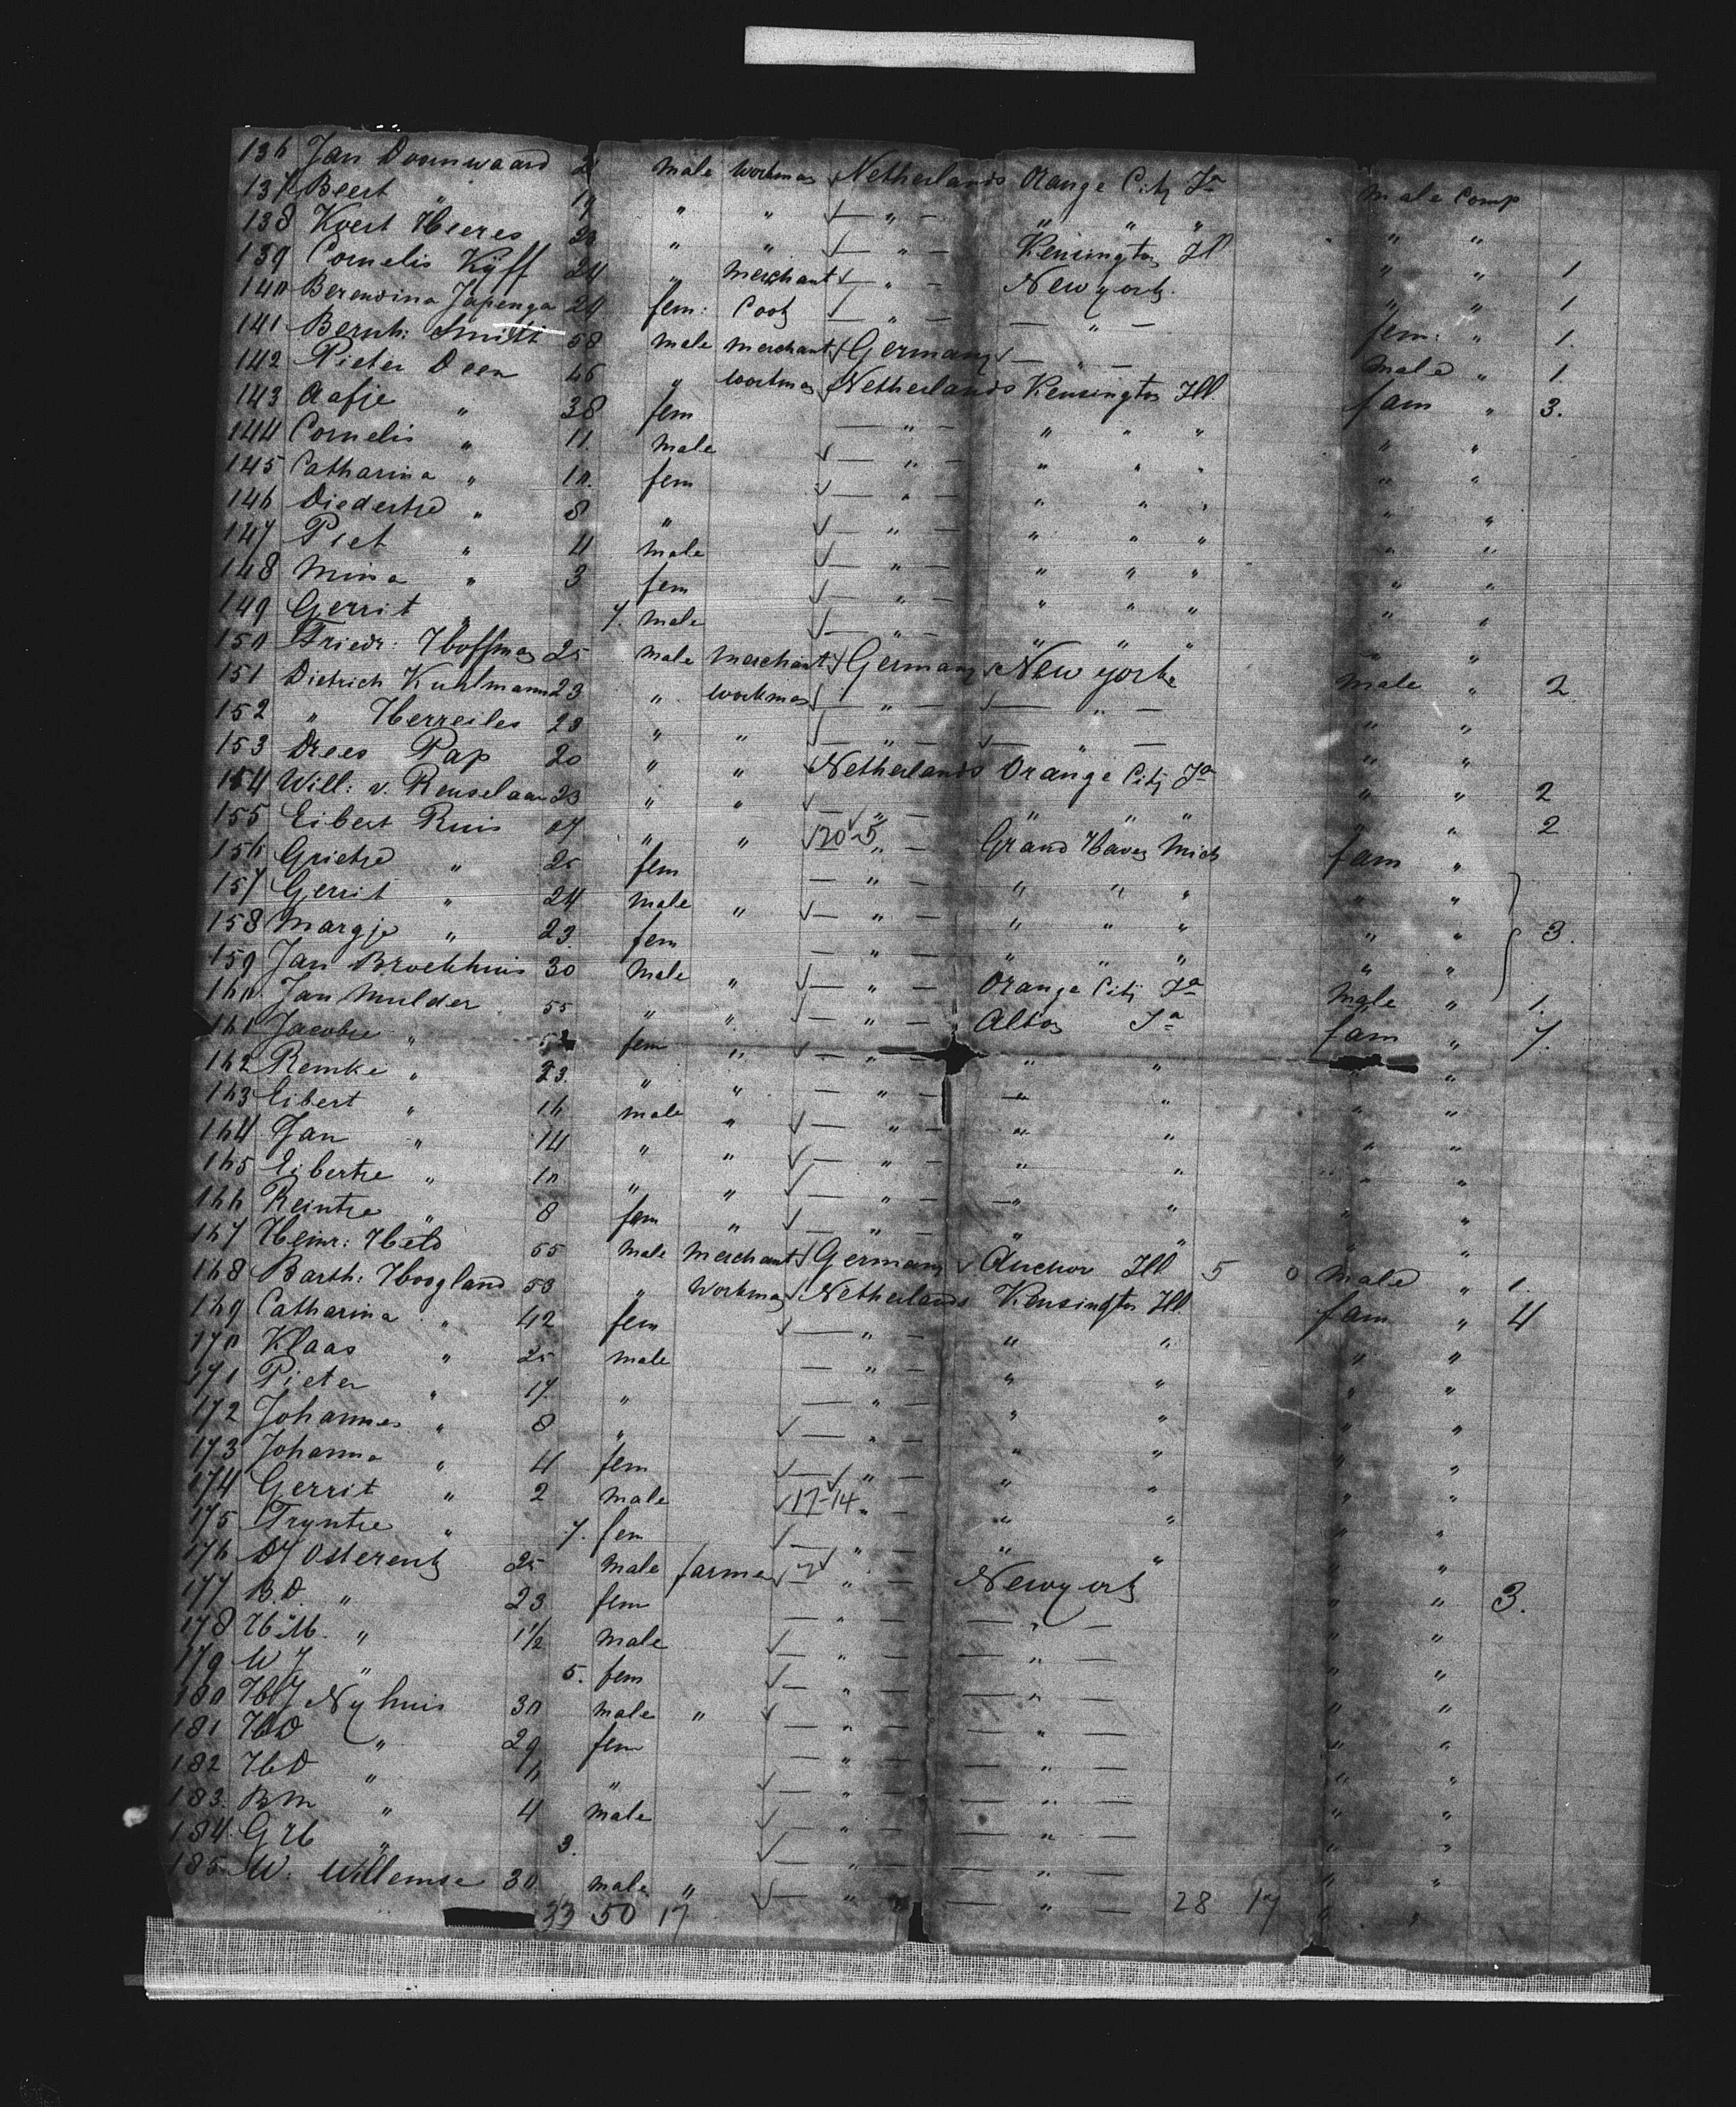 136 Jan Doornwaard 2 male workman Netherlands Orange City Ia male Comp
137 Beert " 19 " " " " " " " "
138 Koert Heeres 23 " " " Kensington Ill " " 1
139 Cornelis Kÿff 24 " merchant " New york " " 1
140 Berendina Japenga 24 fem: Cook " " fem: " 1.
141 Bernh: Smitt 58 male merchant Germany " male " 1.
142 Pieter Deen 46 " workman Netherlands Kensington Ill. fam " 3.
143 Aafje " 38 fem " " " " " "
144 Cornelis " 11. male " " " " " "
145 Catharina " 10. fem " " " " " "
146 Diedertje " 8 " " " " " " "
147 Piet " 4 male " " " " " "
148 Mina " 3 fem " " " " " "
149 Gerrit " 7. male " " " " " "
150 Friedr: Hoffman 25 male merchant Germany New york male " 2
151 Dietrich Kuhlmann 23 " workman " " " "
152 " Herreiles 28 " " " " " "
153 Drees Pap 20 " " Netherlands Orange City Ia " " 2
154 Will: v. Renselaar 23 " " " " " " " " 2
155 Eibert Ruis 27 " " 20-5 " Grand Haven Mich fam "
156 Grietje " 25 fem " " " " " "
157 Gerrit " 24 male " " " " " " " 3.
158 Margje " 23. fem " " " " " "
159 Jan Broekhuis 30 male " " Orange City Ia male " 1.
160 Jan Mulder 55 " " " Alton Ia fam " 7.
161 Jacobje " 52 fem " " " " " "
162 Remke " 23. " " " " " " "
163 Eibert " 16 male " " " " " "
164 Jan " 14 " " " " " " "
165 Eibertje " 10 " " " " " " "
166 Reintje " 8 fem " " " " " "
167 Heinr: Held 55 male merchant Germany Anchor Ill 5 0 male " 1.
168 Barth: Hoogland 50 " workman Netherlands Kensington Ill fam " 4
169 Catharina " 42 fem " " " " "
170 Klaas " 25 male " " " " "
171 Pieter " 17. " " " " " "
172 Johannes " 8 " " " " " "
173 Johanna " 4 fem " " " " "
174 Gerrit " 2 male 17-14 " " " " "
175 Tryntje " 7. fem " " " " "
176 DJ Osterenk 25 male farmer " New york " " 3.
177 B.D. " 23 fem " " " "
178 H.M. " 1 1/2 male " " " "
179 WJ " 5. fem " " " "
180 HJ Nyhuis 30 male " " " " "
181 HD " 29 fem " " " "
182 HD " 6 " " " " "
183. BM " 4 male " " " "
184. GH " 3. " " " "
185. W. Willemse 30 male " " " " "
33 50 17 28 17